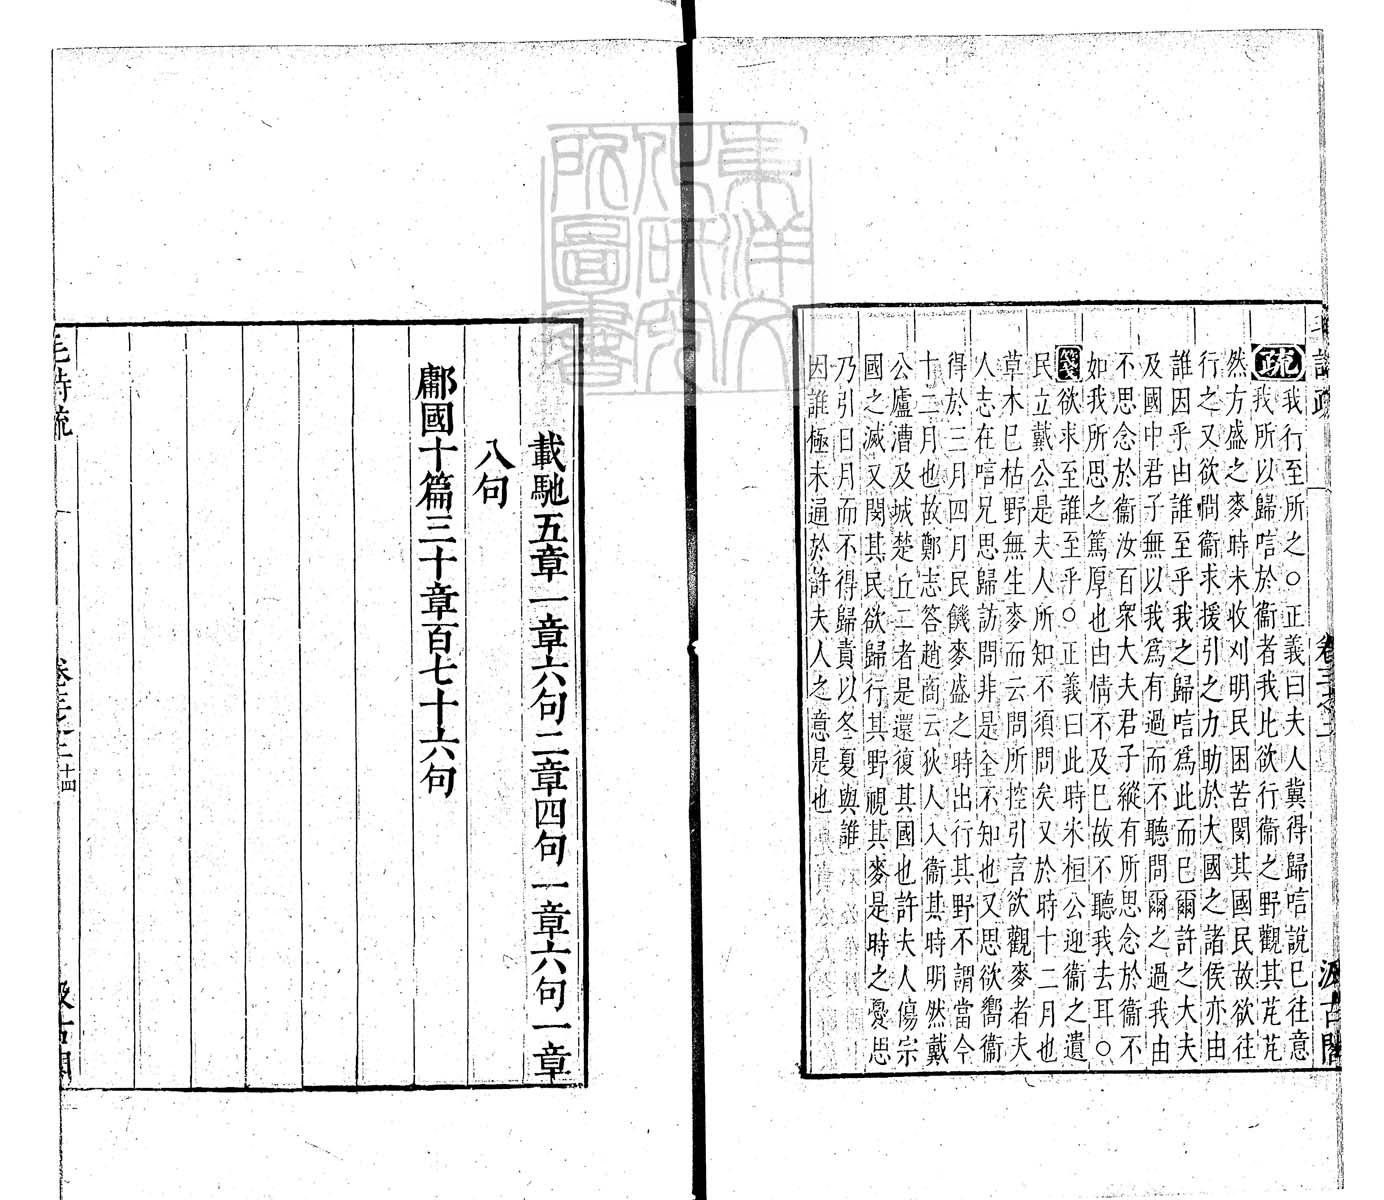 疏我行至所之○正義曰夫人冀得歸唁說已往意
我所以歸唁於衞者我此欲行衞之野觀其芃芃
然方盛之麥時未收刈明民困苦閔其國民故欲往
行之又欲問衞求援引之力助於大國之諸侯亦由
誰因乎由誰至乎我之歸唁爲此而巳爾許之大夫
及國中君子無以我爲有過而不聽問爾之過我由
不思念於衞汝百衆大夫君子縱有所思念於衞不
如我所思之篤厚也由情不及巳故不聽我去耳○
箋欲求至誰至乎○正義曰此時宋桓公迎衞之遺
民立戴公是夫人所知不須問矣又於時十二月也
草木巳枯野無生麥而云問所控引言欲觀麥者夫
人志在唁兄思歸訪問非是全不知也又思欲嚮衞
得於三月四月民饑麥盛之時出行其野不謂當今
十二月也故鄭志答趙商云狄人入衞其時明然戴
公廬漕及城楚丘二者是還復其國也許夫人傷宗
國之滅又閔其民欲歸行其野視其麥是時之憂思
乃引日月而不得歸責以冬夏與誰
因誰極未通於許夫人之意是也
卷三之二
汲古閣
載馳五章一章六句二章四句一章六句一章
八句
鄘國十篇三十章百七十六句
毛詩疏
卷三之二
十四
汲古閣
東洋文
化研究
所圖書